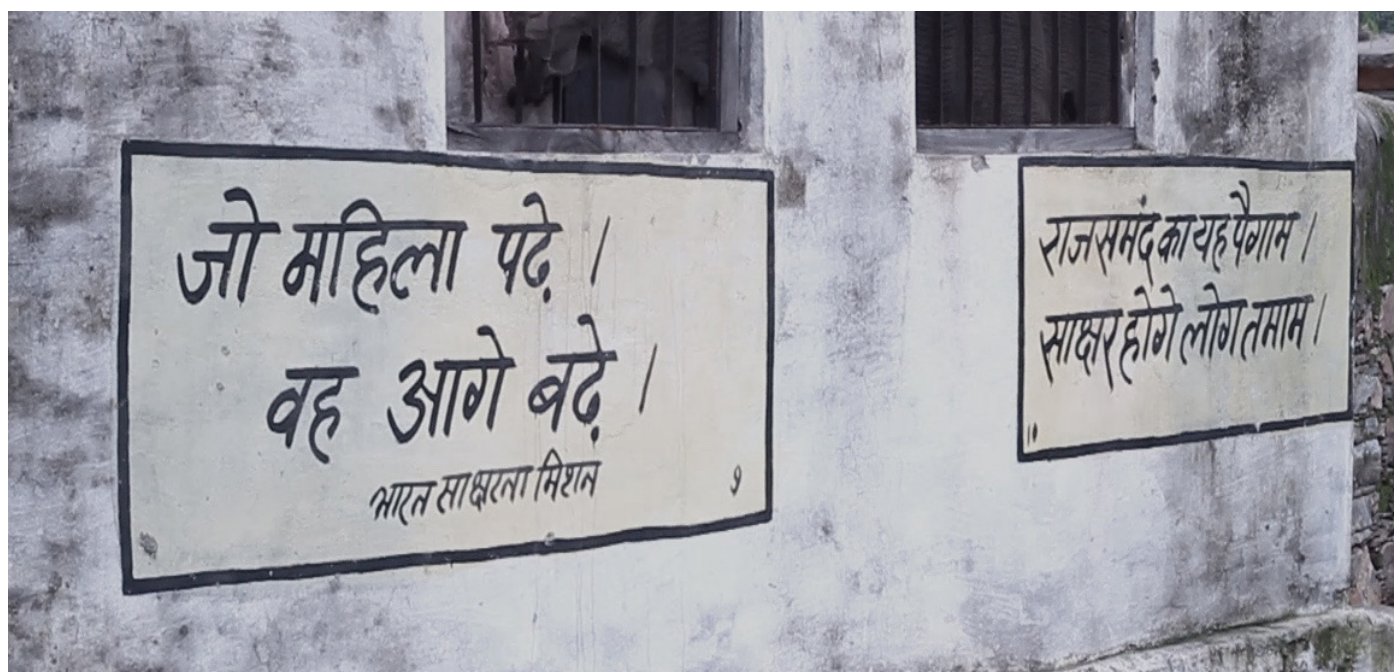 जो महिला पढ़े ।
वह आगे बढ़े ।
भारत साक्षरता मिशन
9
राजसमंद का यह पैगाम ।
साक्षर होगे लोग तमाम ।
10